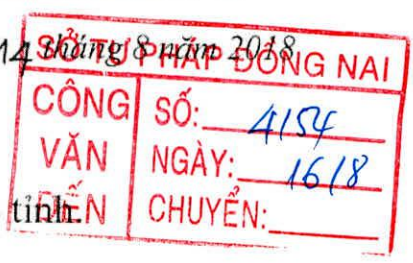 14 tháng 8 năm 2018
SỞ TƯ PHÁP ĐỒNG NAI
CÔNG VĂN ĐẾN
SỐ: 4154
NGÀY: 16/8
CHUYỂN:
tỉnh.